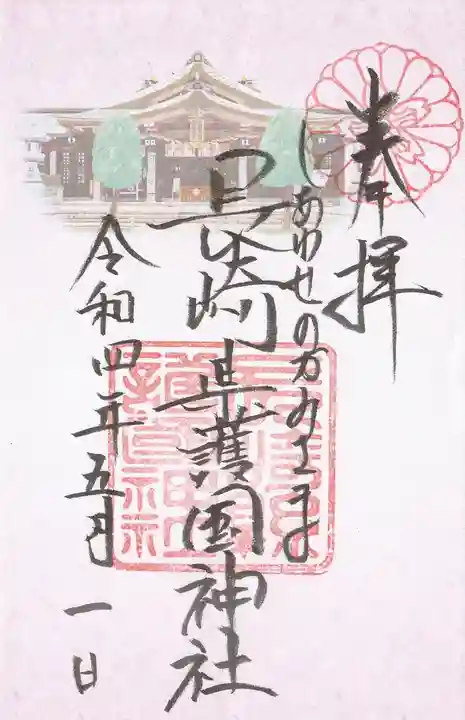 奉拝
しあわせの
長崎県護国神社
令和四年五月一日